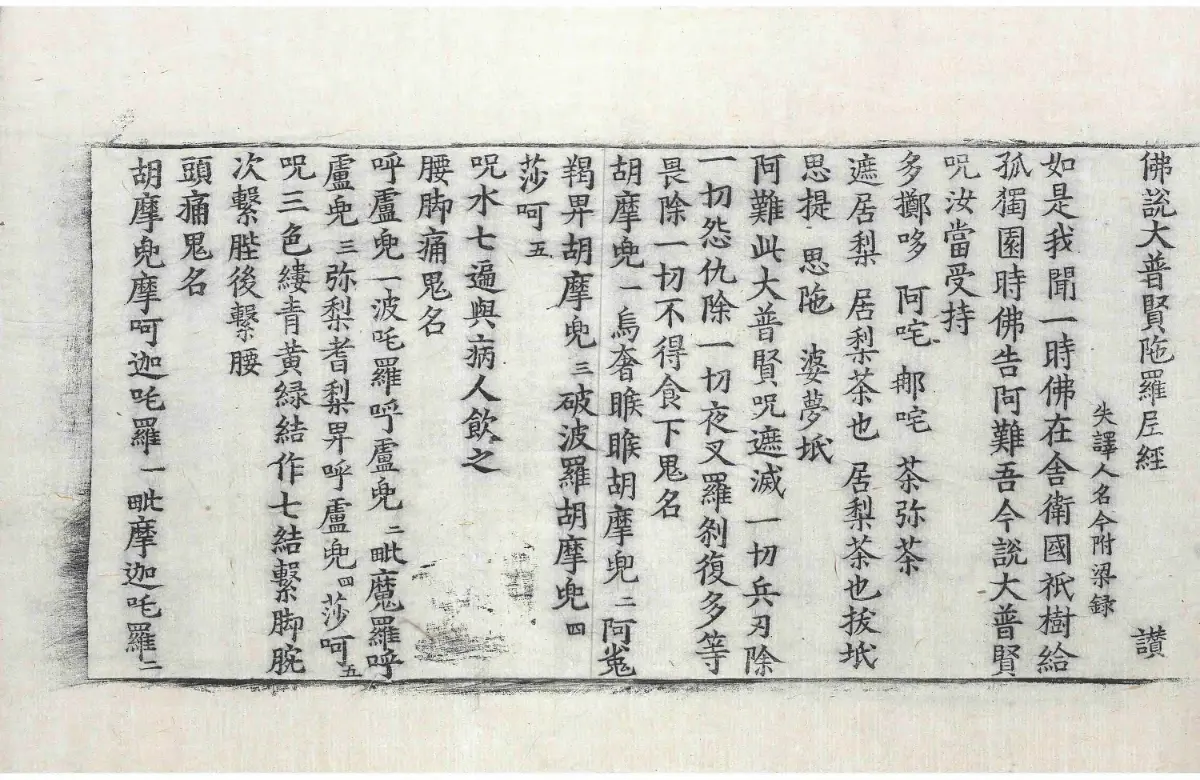 佛說大普賢陁羅尼經 讃
失譯人名今附梁録
如是我聞一時佛在舎衛國祇樹給
孤獨園時佛告阿難吾今說大普賢
呪汝當受持
多擲哆 阿咤 𨚗咤 茶弥茶
遮居梨 居梨茶也 居梨茶也拔坻
思提 思陁 婆夢坻
阿難此大普賢呪遮滅一切兵刃除
一切怨仇除一切夜叉羅剎復多等
畏除一切不得食下鬼名
胡摩兜一烏奢睺睺胡摩兜二阿㝹
羯畀胡摩兜三破波羅胡摩兜四
莎呵五
呪水七遍與病人飲之
腰脚痛鬼名
呼盧兜一波吒羅呼盧兜二毗魔羅呼
盧兜三弥梨耆梨畀呼盧兜四莎呵五
呪三色縷青黄緑結作七結繋脚腕
次繋䏶後繋腰
頭痛鬼名
胡摩兜摩呵迦吒羅一毗摩迦吒羅二